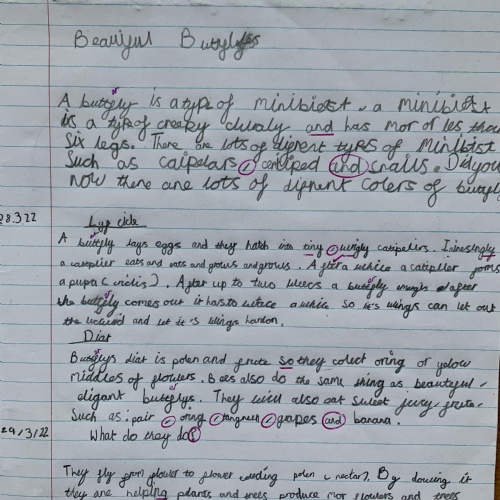 Beautiful Butyflyes
A buttfly is a type of minibiest. a minibiest
is a type of creepy cluraly and has mor or les then
Six legs. There are lots of diprent types of minibist
Such as catpelars, centiped and snails. Did you
now there are lots of diphrent colers of buttfly
28.3.22
Lyf cicle
A buttfly lays eggs and they hatch into tiny, wrigly catipelers. Intresingly
a caterpiler eats and eats and grows and grows. After a while a catipiller forms
a pupa (crislis). After up to two weecs a buttfly emergis after
the buttfly comes out it has to wate a while so it's wings can let out
the and let it's wings harden.
Diat
Buttflys diat is polen and frute so they colect oring or yelow
middles of flowers. Bees also do the same thing as beauteful,
eligant buttflys. They will also eat sweet juicy frute
Such as: pair, oring, tangreen, grapes and banana.
29/3/22
What do they do?
They fly from flower to flower polen (nectar). By dowing it
they are helping plants and trees produce mor flowers and trees